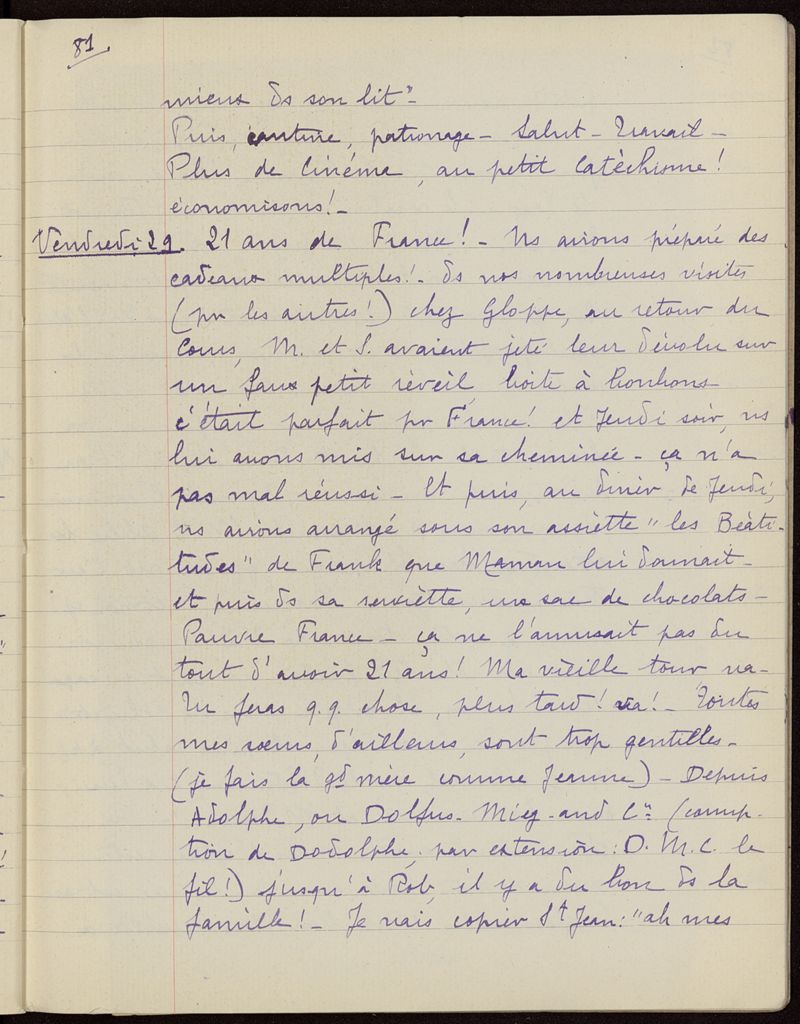 81
mieux ds son lit" -
Puis, couture, patronage - Salut - Travail -
Plus de Cinéma, au petit Catéchisme!
économisons! -
Vendredi 29. 21 ans de France! - Ns avions préparé des
cadeaux multiples! - ds nos nombreuses visites
(pr les autres!) chez Gloppe, au retour du
Cours, M. et S. avaient jeté leur dévolu sur
un faux petit réveil, boîte à bonbons
c'était parfait pr France! et Jeudi soir, ns
lui avons mis sur sa cheminée - ça n'a
pas mal réussi - Et puis, au dîner de Jeudi,
ns avions arrangé sous son assiette "les Béati-
tudes" de Frank que Maman lui donnait -
et puis ds sa serviette, un sac de chocolats -
Pauvre France - ça ne l'amusait pas du
tout d'avoir 21 ans! Ma vieille tour va -
Tu feras q.q. chose, plus tard! va! - Toutes
mes sœurs, d'ailleurs, sont trop gentilles -
(je fais la gd mère comme Jeanne) - Depuis
Adolphe, ou Dolfus-Mieg-and Cie (corrup-
tion de Dodolphe, par extension: D.M.C. le
fil!) jusqu'à Rob, il y a du bon ds la
famille! - Je vais copier St Jean: "ah mes